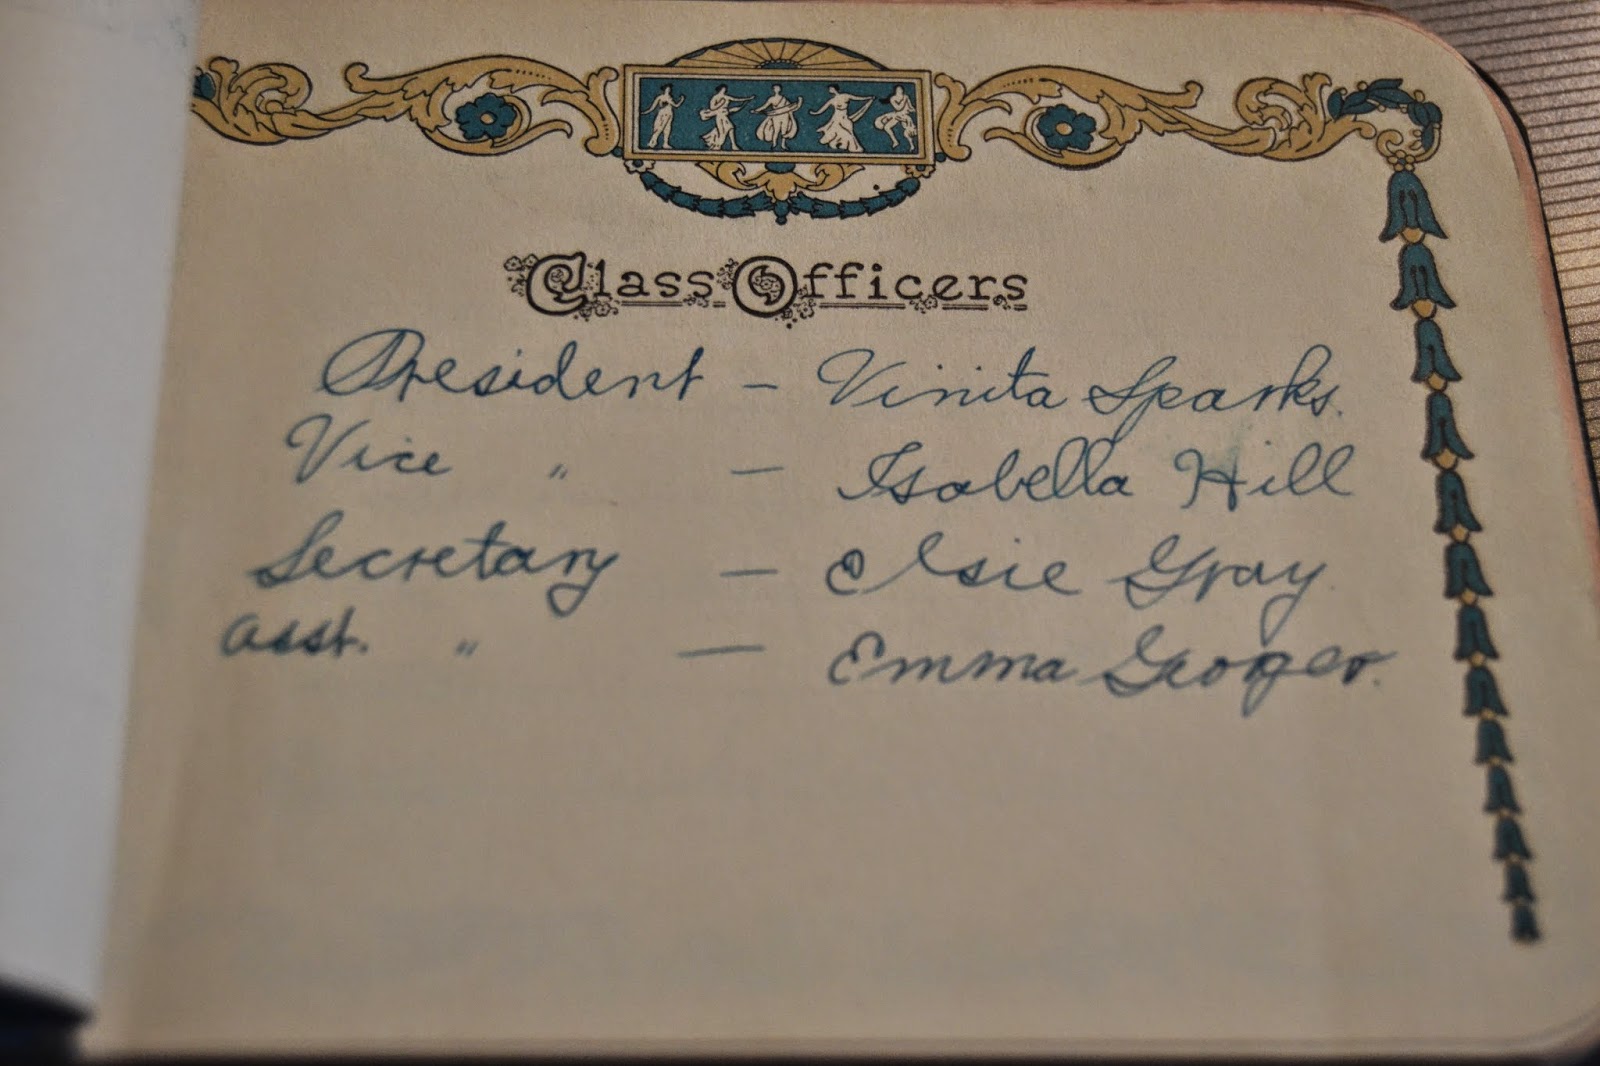 Class Officers
President - Vinita Sparks.
Vice " - Isabella Hill
Secretary - Elsie Gray.
asst. " - Emma